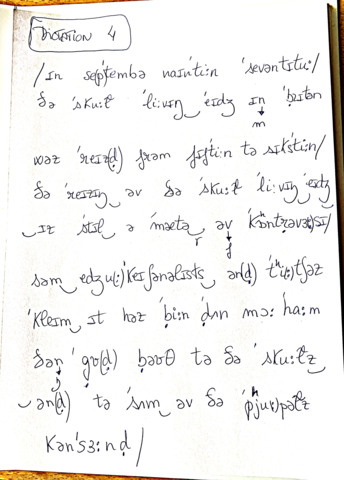 DICTATION 4
/ɪn septembə naɪntiːn ˈsevəntɪtuː/
ðə ˈskuːɫ ˈliːvɪŋ ˈeɪdʒ ɪn ˈbrɪtən
m
wəz ˈreɪz(d̥) frəm fɪftiːn tə sɪkstiːn/
ðə ˈreɪzɪŋ əv ðə ˈskuːɫ ˈliːvɪŋ ˈeɪdʒ
ɪz ˈstɪl ə ˈmætə əv ˈkɒntrəvəsɪ/
r f
səm edʒu(ː)ˈkeɪʃənəlɪsts ən(d) ˈtʰiː(r)tʃəz
ˈkleɪm ɪt həz ˈb̥iːn ˈd̥ʌn mɔː ˈhaːm
ðən ˈgʊ(d) b̥əʊθ tə ðə ˈskuːɫz
ən(d) tə ˈsʌm əv ðə ˈpʰjuː)pəɫz
kənˈsɜːnd̥/